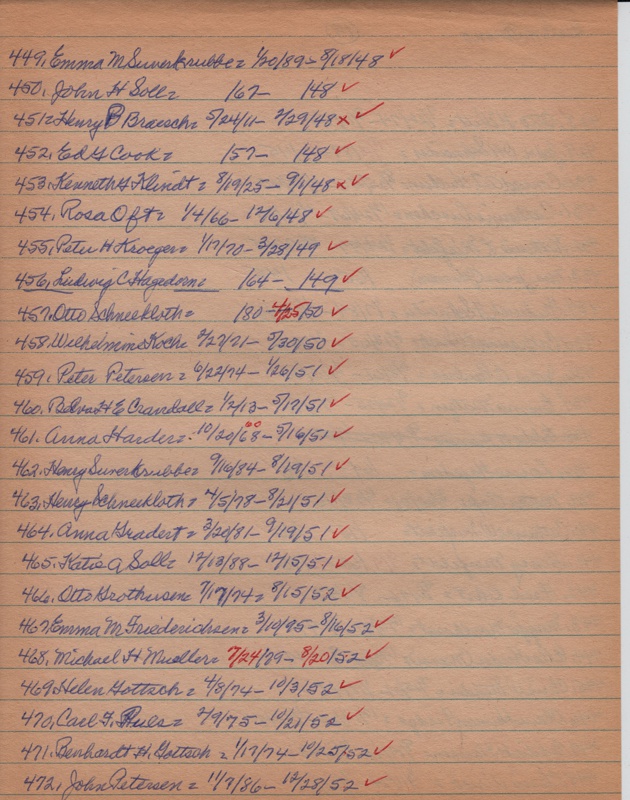 449. Emma M Suverkrubbe = 1/20/89 - 8/18/48 ✓
450. John H Soll = 167 - 148 ✓
451 = Henry P Braesch = 5/24/11 - 2/29/48 x ✓
452. Ed G Cook = 157 - 148 ✓
453. Kenneth G Klindt = 8/19/25 - 9/1/48 x ✓
454. Rosa Oft = 1/4/66 - 12/6/48 ✓
455. Peter H Kroeger = 1/17/70 - 3/28/49 ✓
456. Ludwig C Hagedorn = 164 - 149 ✓
457. Otto Schneekloth = 180 - 4/25/50 ✓
458. Wilhelmine Koch = 2/27/71 - 5/30/50 ✓
459. Peter Petersen = 6/22/74 - 1/26/51 ✓
460. Belva H E Crandall = 1/2/13 - 5/17/51 ✓
461. Anna Harder = 10/20/68 60 - 5/16/51 ✓
462. Henry Suverkrubbe = 9/16/84 - 8/19/51 ✓
463. Henry Schneekloth = 4/5/78 - 8/21/51 ✓
464. Anna Gradert = 3/20/81 - 9/19/51 ✓
465. Katie A Soll = 12/13/88 - 12/15/51 ✓
466. Otto Grothusen = 7/17/74 = 8/15/52 ✓
467. Emma M Friederichsen = 3/10/95 - 8/16/52 ✓
468. Michael H Mueller = 7/24/79 - 8/20/52 ✓
469. Helen Gottsch = 4/8/74 - 10/3/52 ✓
470. Carl F. = 2/9/75 - 10/21/52 ✓
471. Benhardt H. Gottsch = 1/17/74 - 10/25/52 ✓
472. John Petersen = 11/7/86 - 12/28/52 ✓